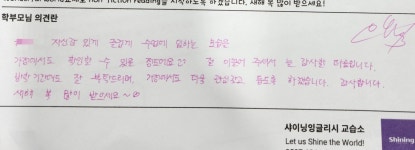 non-fiction reading을 시작하도록 하겠습니다. 새해 복 많이 받으세요!
학부모님 의견란
자신감 있게 즐겁게 수업에 임하는 모습은
가정에서도 확인할 수 있을 정도예요 잘 이끌어 주셔서 늘 감사한 마음입니다.
방학 기간에도 잘 부탁드리며, 가정에서도 더욱 관심갖고 돕도록 하겠습니다. 감사합니다.
새해 복 많이 받으세요~
샤이닝잉글리시 교습소
Let us Shine the World!
Shining